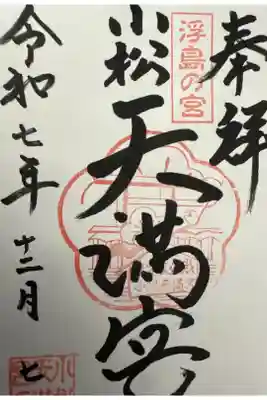 奉拝
浮島の宮
小松天満宮
令和七年十二月七